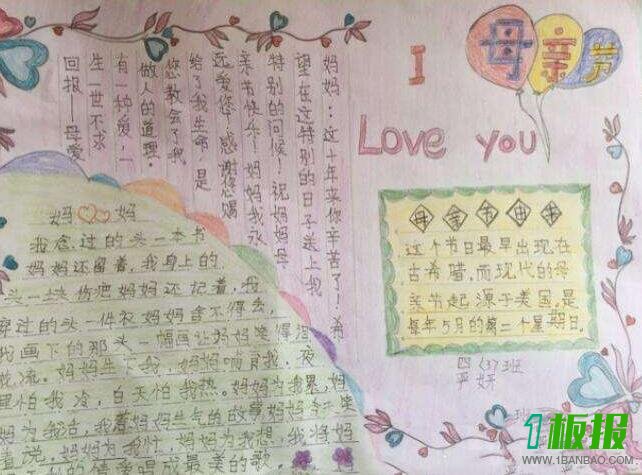 I
母亲节
Love you
妈妈：这十年来你辛苦了！希
望在这特别的日子送上我
特别的问候！祝妈妈母
亲节快乐！妈妈我永
远爱您！感谢您赐
给了我生命，是
您教会了我
做人的道理。
有一种爱，一
生一世不求
回报—母爱
母亲节由来
这个节日最早出现在
古希腊，而现代的母
亲节起源于美国，是
每年5月的第二个星期日。
四(3)班
妈妈
我念过的头一本书
妈妈还留着，我身上的
头一头伤疤妈妈还记着，我
穿过的头一件衣妈妈舍不得丢，
我画下的那头一幅画让妈妈笑得泪
花流。妈妈生下我，妈妈哺育我，夜
里怕我冷，白天怕我热。妈妈为我累，妈
妈为我活，我看妈妈生气的
妈妈为我忙，妈妈为我想，我将妈
美的歌，
1板报
WWW.1BANBAO.COM